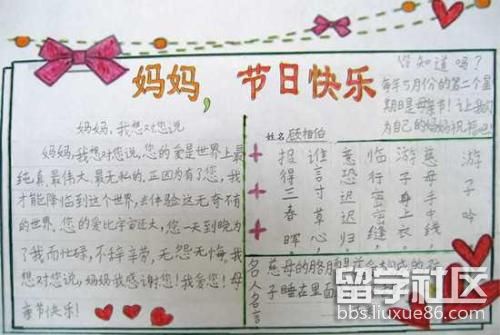 妈妈，节日快乐
你知道吗？
每年5月份的第二个星
期日是母亲节！让我们
为自己的妈妈祝福吧！
妈妈，我想对您说
妈妈，我想对您说，您的爱是世界上最
纯真、最伟大、最无私的，正因为有了您，我
才能降临到这个世界，去体验这无奇不有
的世界。您的爱比宇宙还大，您一天到晚为
了我而忙碌，不辞辛劳，无怨无悔，我
想对您说，妈妈我感谢您！我爱您！母
亲节快乐！
姓名 顾相伯
游子吟
慈母手中线
游子身上衣
临行密密缝
意恐迟迟归
谁言寸草心
报得三春晖
名人名言
慈母的胳膊
子睡在里面
留学社区
bbs.liuxue86.com